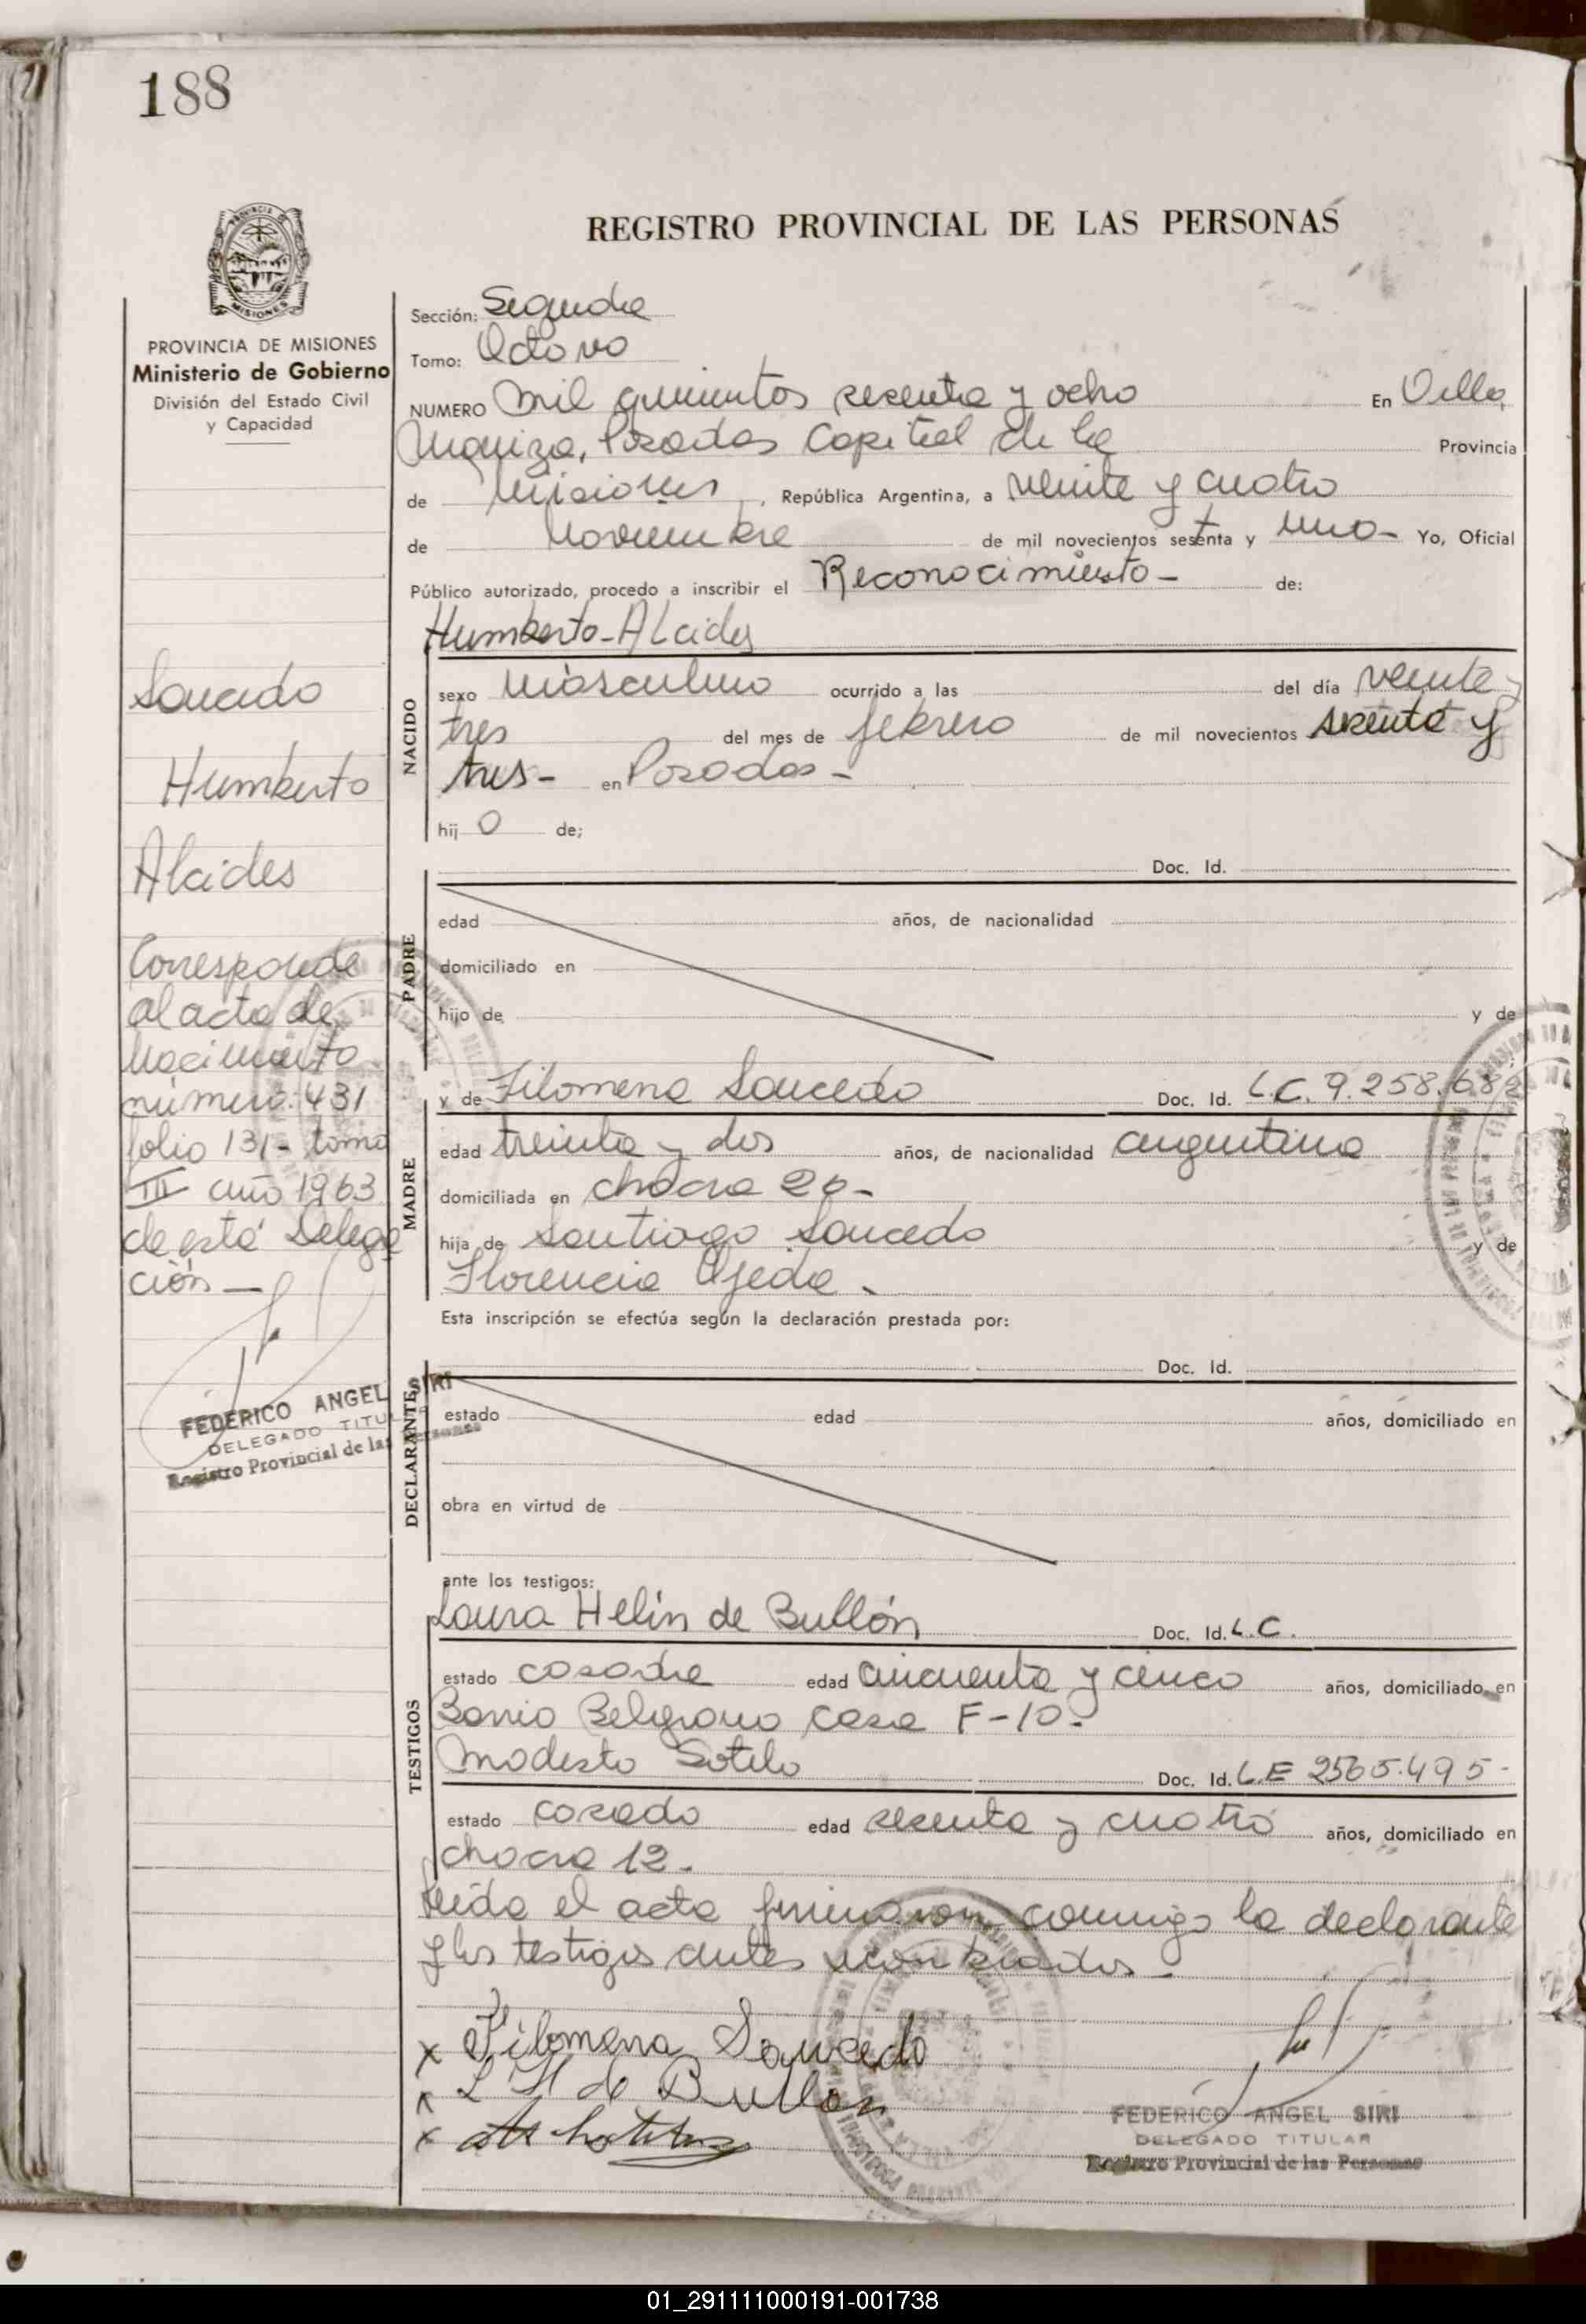 188
REGISTRO PROVINCIAL DE LAS PERSONAS
MISIONES
PROVINCIA DE MISIONES
Ministerio de Gobierno
División del Estado Civil
y Capacidad
Sección: Segunda
Tomo: Octavo
NUMERO Mil quinientos sesenta y ocho En Villa
Urquiza, Posadas Capital de la Provincia
de Misiones, República Argentina, a veinte y cuatro
de Noviembre de mil novecientos setenta y uno- Yo, Oficial
Público autorizado, procedo a inscribir el Reconocimiento- de:
Humberto-Alcides
NACIDO
sexo masculino ocurrido a las del día veinte y
tres del mes de febrero de mil novecientos sesenta y
tres- en Posadas-
hij o de;
Doc. Id.
PADRE
edad años, de nacionalidad
domiciliado en
hijo de y de
y de Filomena Saucedo Doc. Id. L.C. 9.258.682
MADRE
edad treinta y dos años, de nacionalidad argentina
domiciliada en chacra 20-
hija de Santiago Saucedo y de
Florencia Ojeda.
Esta inscripción se efectúa según la declaración prestada por:
Doc. Id.
DECLARANTE
estado edad años, domiciliado en
obra en virtud de
ante los testigos:
Laura Helin de Bullón Doc. Id. L.C.
TESTIGOS
estado casada edad cincuenta y cinco años, domiciliado en
Barrio Belgrano casa F-10.
Modesto Sotelo Doc. Id. L.E 2565.495-
estado casado edad sesenta y cuatro años, domiciliado en
chacra 12.
Leída el acta firmaron conmigo la declarante
y los testigos antes nombrados-
x Filomena Saucedo
x L H de Bullon
x
FEDERICO ANGEL SIRI
DELEGADO TITULAR
Registro Provincial de las Personas
Saucedo
Humberto
Alcides
Corresponde
al acta de
Nacimiento
número: 431
folio 131- tomo
III año 1963
de esta Delega
ción-
FEDERICO ANGEL SIRI
DELEGADO TITULAR
Registro Provincial de las Personas
01_291111000191-001738